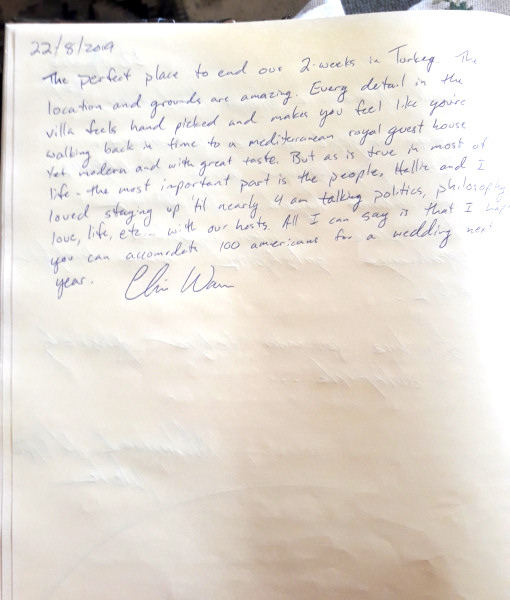 22/8/2019
The perfect place to end our 2-weeks in Turkey. The
location and grounds are amazing. Every detail in the
villa feels hand picked and makes you feel like you're
walking back in time to a mediterranean royal guest house
Yet modern and with great taste. But as is true in most of
life - the most important part is the people. Hallie and I
loved staying up 'til nearly 4 am talking politics, philosophy
love, life, etc... with our hosts. All I can say is that I
you can accomodate 100 americans for a wedding next
year.